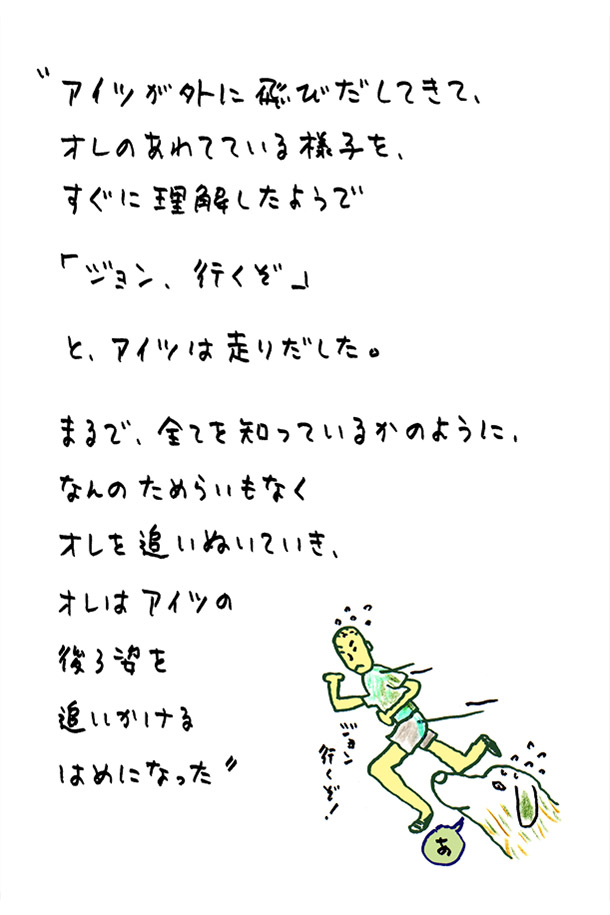 〝アイツが外に飛びだしてきて、
オレのあわてている様子を、
すぐに理解したようで
「ジョン、行くぞ」
と、アイツは走りだした。
まるで、全てを知っているかのように、
なんのためらいもなく
オレを追いぬいていき、
オレはアイツの
後ろ姿を
追いかける
はめになった〞
ジョン
行くぞ！
あ